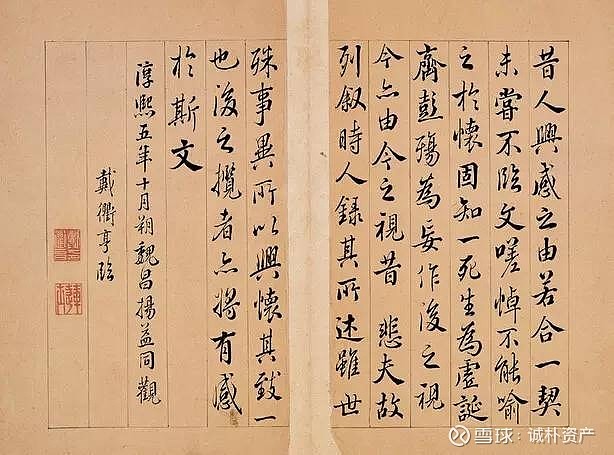 昔人興感之由若合一契
未嘗不臨文嗟悼不能喻
之於懷固知一死生為虛誕
齊彭殤為妄作後之視
今亦由今之視昔 悲夫故
列叙時人錄其所述雖世
殊事異所以興懷其致一
也後之攬者亦將有感
於斯文
淳熙五年十月朔魏昌揚益同觀
戴衢亨臨
雪球：诚朴资产